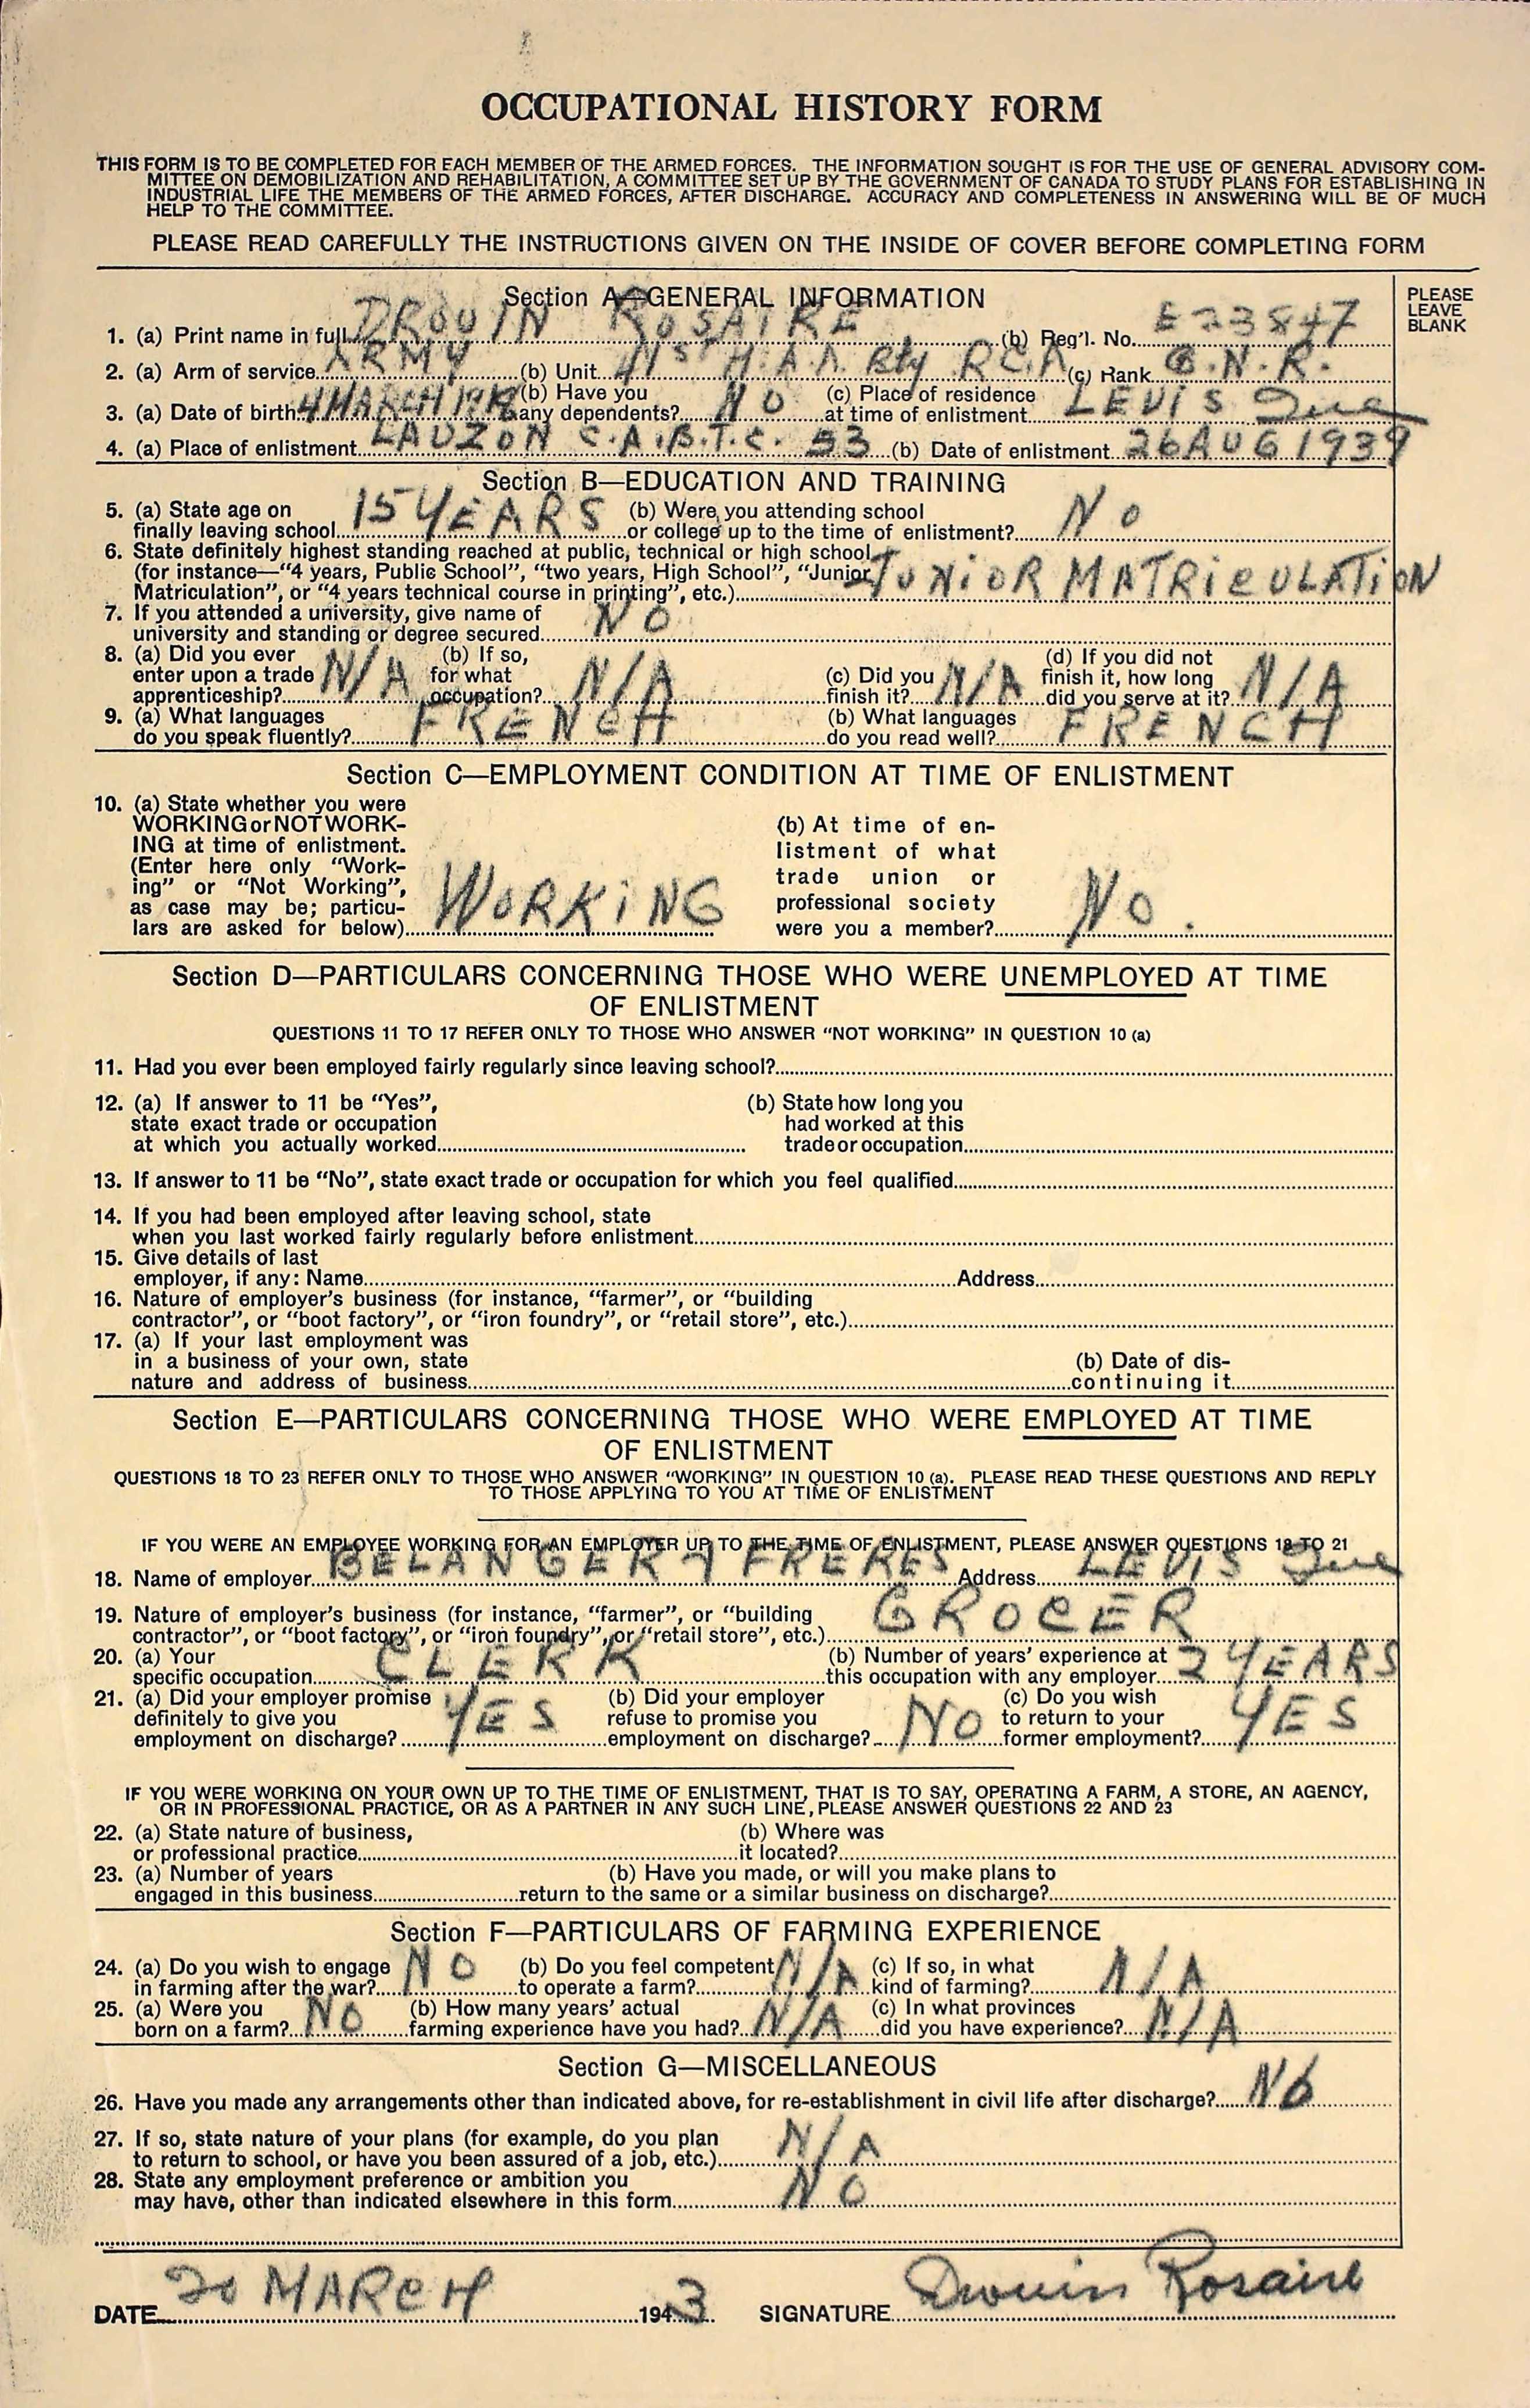 OCCUPATIONAL HISTORY FORM
THIS FORM IS TO BE COMPLETED FOR EACH MEMBER OF THE ARMED FORCES. THE INFORMATION SOUGHT IS FOR THE USE OF GENERAL ADVISORY COM-
MITTEE ON DEMOBILIZATION AND REHABILITATION, A COMMITTEE SET UP BY THE GOVERNMENT OF CANADA TO STUDY PLANS FOR ESTABLISHING IN
INDUSTRIAL LIFE THE MEMBERS OF THE ARMED FORCES, AFTER DISCHARGE. ACCURACY AND COMPLETENESS IN ANSWERING WILL BE OF MUCH
HELP TO THE COMMITTEE.
PLEASE READ CAREFULLY THE INSTRUCTIONS GIVEN ON THE INSIDE OF COVER BEFORE COMPLETING FORM
Section A—GENERAL INFORMATION
PLEASE
LEAVE
BLANK
1. (a) Print name in full DROUIN ROSAIRE (b) Reg'l. No. E23847
2. (a) Arm of service ARMY (b) Unit 41st H.A.A Bty RCA (c) Rank G.N.R.
3. (a) Date of birth 4 MARCH (b) Have you any dependents? NO (c) Place of residence at time of enlistment LEVIS Que
4. (a) Place of enlistment LAUZON C.A.B.T.C. 53 (b) Date of enlistment 26 AUG 1939
Section B—EDUCATION AND TRAINING
5. (a) State age on (b) Were you attending school
finally leaving school 15 YEARS or college up to the time of enlistment? No
6. State definitely highest standing reached at public, technical or high school
(for instance—"4 years, Public School", "two years, High School", "Junior
Matriculation", or "4 years technical course in printing", etc.) JUNIOR MATRICULATION
7. If you attended a university, give name of
university and standing or degree secured NO
8. (a) Did you ever enter upon a trade apprenticeship? N/A (b) If so, for what occupation? N/A (c) Did you finish it? N/A (d) If you did not finish it, how long did you serve at it? N/A
9. (a) What languages do you speak fluently? FRENCH (b) What languages do you read well? FRENCH
Section C—EMPLOYMENT CONDITION AT TIME OF ENLISTMENT
10. (a) State whether you were
WORKING or NOT WORK-
ING at time of enlistment.
(Enter here only "Work-
ing" or "Not Working",
as case may be; particu-
lars are asked for below) WORKING
(b) At time of en-
listment of what
trade union or
professional society
were you a member? No.
Section D—PARTICULARS CONCERNING THOSE WHO WERE UNEMPLOYED AT TIME
OF ENLISTMENT
QUESTIONS 11 TO 17 REFER ONLY TO THOSE WHO ANSWER "NOT WORKING" IN QUESTION 10 (a)
11. Had you ever been employed fairly regularly since leaving school?
12. (a) If answer to 11 be "Yes", (b) State how long you
state exact trade or occupation had worked at this
at which you actually worked trade or occupation
13. If answer to 11 be "No", state exact trade or occupation for which you feel qualified
14. If you had been employed after leaving school, state
when you last worked fairly regularly before enlistment
15. Give details of last
employer, if any: Name Address
16. Nature of employer's business (for instance, "farmer", or "building
contractor", or "boot factory", or "iron foundry", or "retail store", etc.)
17. (a) If your last employment was
in a business of your own, state (b) Date of dis-
nature and address of business continuing it
Section E—PARTICULARS CONCERNING THOSE WHO WERE EMPLOYED AT TIME
OF ENLISTMENT
QUESTIONS 18 TO 23 REFER ONLY TO THOSE WHO ANSWER "WORKING" IN QUESTION 10 (a). PLEASE READ THESE QUESTIONS AND REPLY
TO THOSE APPLYING TO YOU AT TIME OF ENLISTMENT
IF YOU WERE AN EMPLOYEE WORKING FOR AN EMPLOYER UP TO THE TIME OF ENLISTMENT, PLEASE ANSWER QUESTIONS 18 TO 21
18. Name of employer BELANGER FRERES Address LEVIS Que
19. Nature of employer's business (for instance, "farmer", or "building
contractor", or "boot factory", or "iron foundry", or "retail store", etc.) GROCER
20. (a) Your (b) Number of years' experience at
specific occupation CLERK this occupation with any employer 2 YEARS
21. (a) Did your employer promise definitely to give you employment on discharge? YES (b) Did your employer refuse to promise you employment on discharge? NO (c) Do you wish to return to your former employment? YES
IF YOU WERE WORKING ON YOUR OWN UP TO THE TIME OF ENLISTMENT, THAT IS TO SAY, OPERATING A FARM, A STORE, AN AGENCY,
OR IN PROFESSIONAL PRACTICE, OR AS A PARTNER IN ANY SUCH LINE, PLEASE ANSWER QUESTIONS 22 AND 23
22. (a) State nature of business, (b) Where was
or professional practice it located?
23. (a) Number of years (b) Have you made, or will you make plans to
engaged in this business return to the same or a similar business on discharge?
Section F—PARTICULARS OF FARMING EXPERIENCE
24. (a) Do you wish to engage in farming after the war? NO (b) Do you feel competent to operate a farm? N/A (c) If so, in what kind of farming? N/A
25. (a) Were you born on a farm? NO (b) How many years' actual farming experience have you had? N/A (c) In what provinces did you have experience? N/A
Section G—MISCELLANEOUS
26. Have you made any arrangements other than indicated above, for re-establishment in civil life after discharge? NO
27. If so, state nature of your plans (for example, do you plan
to return to school, or have you been assured of a job, etc.) N/A
28. State any employment preference or ambition you
may have, other than indicated elsewhere in this form NO
DATE 20 MARCH 1943 SIGNATURE Drouin Rosaire